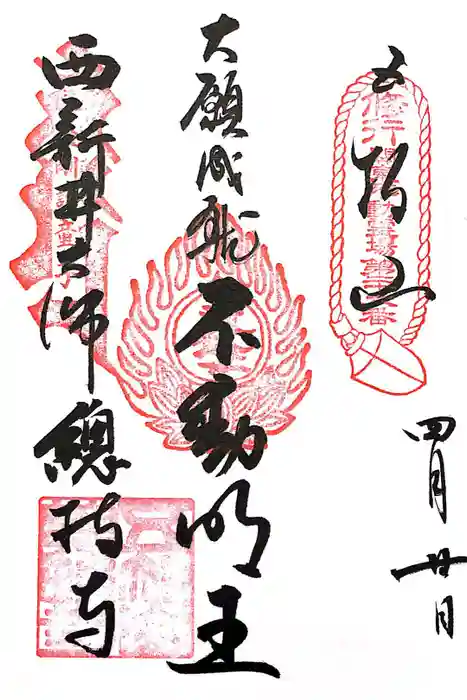 五智山
四月廿日
大願成就
不動明王
西新井大師總持寺